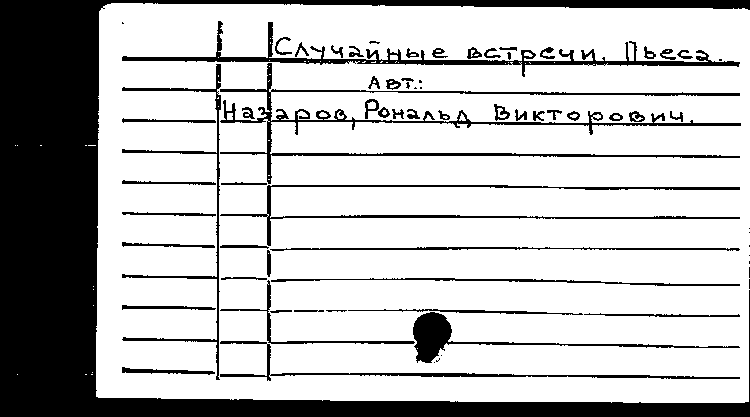 Случайные встречи. Пьеса.
Авт.:
Назаров, Рональд Викторович.